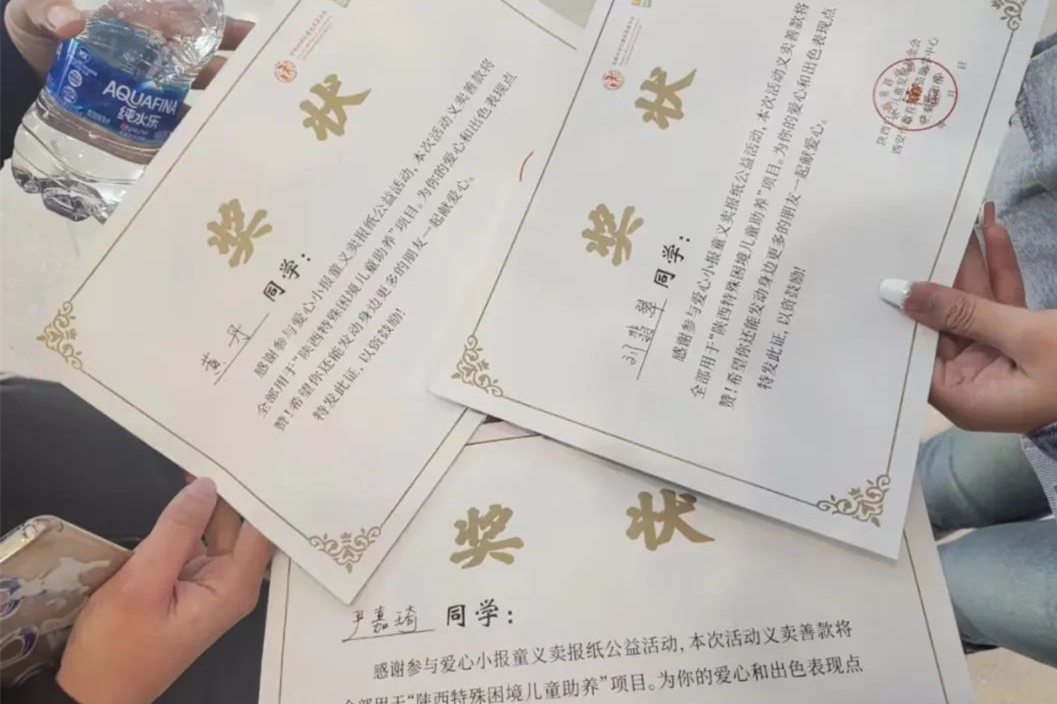 AQUAFINA
纯水乐
奖状
黄丹 同学：
感谢参与爱心小报童义卖报纸公益活动，本次活动义卖善款将
全部用于“陕西特殊困境儿童助养”项目。为你的爱心和出色表现点
赞！希望你还能发动身边更多的朋友一起献爱心。
特发此证，以资鼓励！
奖状
刘翡翠 同学：
感谢参与爱心小报童义卖报纸公益活动，本次活动义卖善款将
全部用于“陕西特殊困境儿童助养”项目。为你的爱心和出色表现点
赞！希望你还能发动身边更多的朋友一起献爱心。
特发此证，以资鼓励！
奖状
尹嘉琦 同学：
感谢参与爱心小报童义卖报纸公益活动，本次活动义卖善款将
全部用于“陕西特殊困境儿童助养”项目。为你的爱心和出色表现点